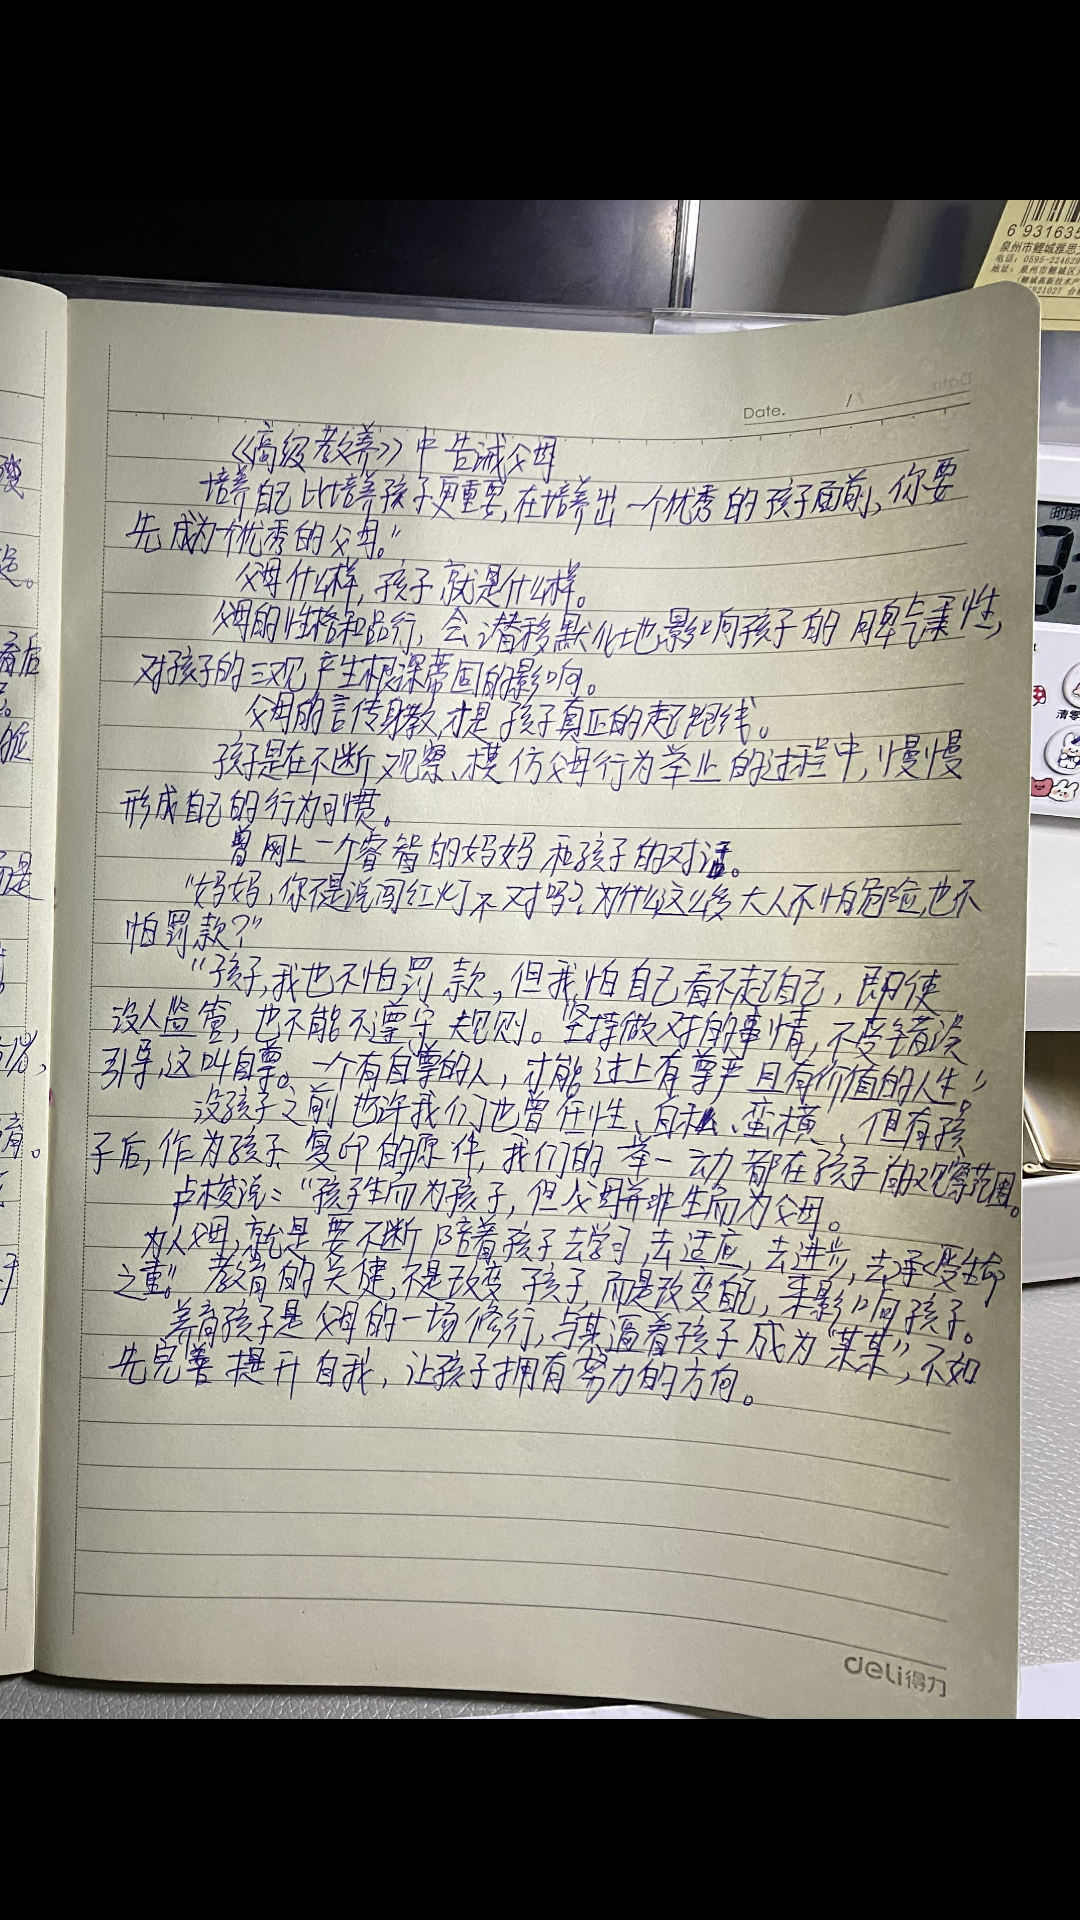 6 931635
泉州市鲤城雅思
电话：0595-224629
地址：泉州市鲤城区
(鲤城高新技术产
Date.
《高级教养》中告诫父母
培养自己比培养孩子更重要,在培养出一个优秀的孩子面前,你要
先成为个优秀的父母。"
父母什么样,孩子就是什么样。
父母的性格和品行,会潜移默化地影响孩子的脾气秉性,
对孩子的三观产生根深蒂固的影响。
父母的言传身教,才是孩子真正的起跑线。
孩子是在不断观察、模仿父母行为举止的过程中,慢慢
形成自己的行为习惯。
曾网上一个睿智的妈妈和孩子的对话。
"妈妈,你不是说闯红灯不对吗?为什么这么多大人不怕危险,也不
怕罚款?"
"孩子,我也不怕罚款,但我怕自己看不起自己,即使
没人监管,也不能不遵守规则。坚持做对的事情,不受错误
引导,这叫自尊。一个有自尊的人,才能过上有尊严且有价值的人生。"
没孩子之前也许我们也曾任性、自私、蛮横,但有孩
子后,作为孩子复印的原件,我们的举一动都在孩子的观察范围。
卢梭说:"孩子生而为孩子,但父母并非生而为父母。
为人父母,就是要不断陪着孩子去学习,去适应,去进步,去承受生命
之重"。教育的关键,不是改变孩子,而是改变自己,来影响孩子。
养育孩子是父母的一场修行,与其逼着孩子成为"某某",不如
先完善提升自我,让孩子拥有努力的方向。
清零
deli得力